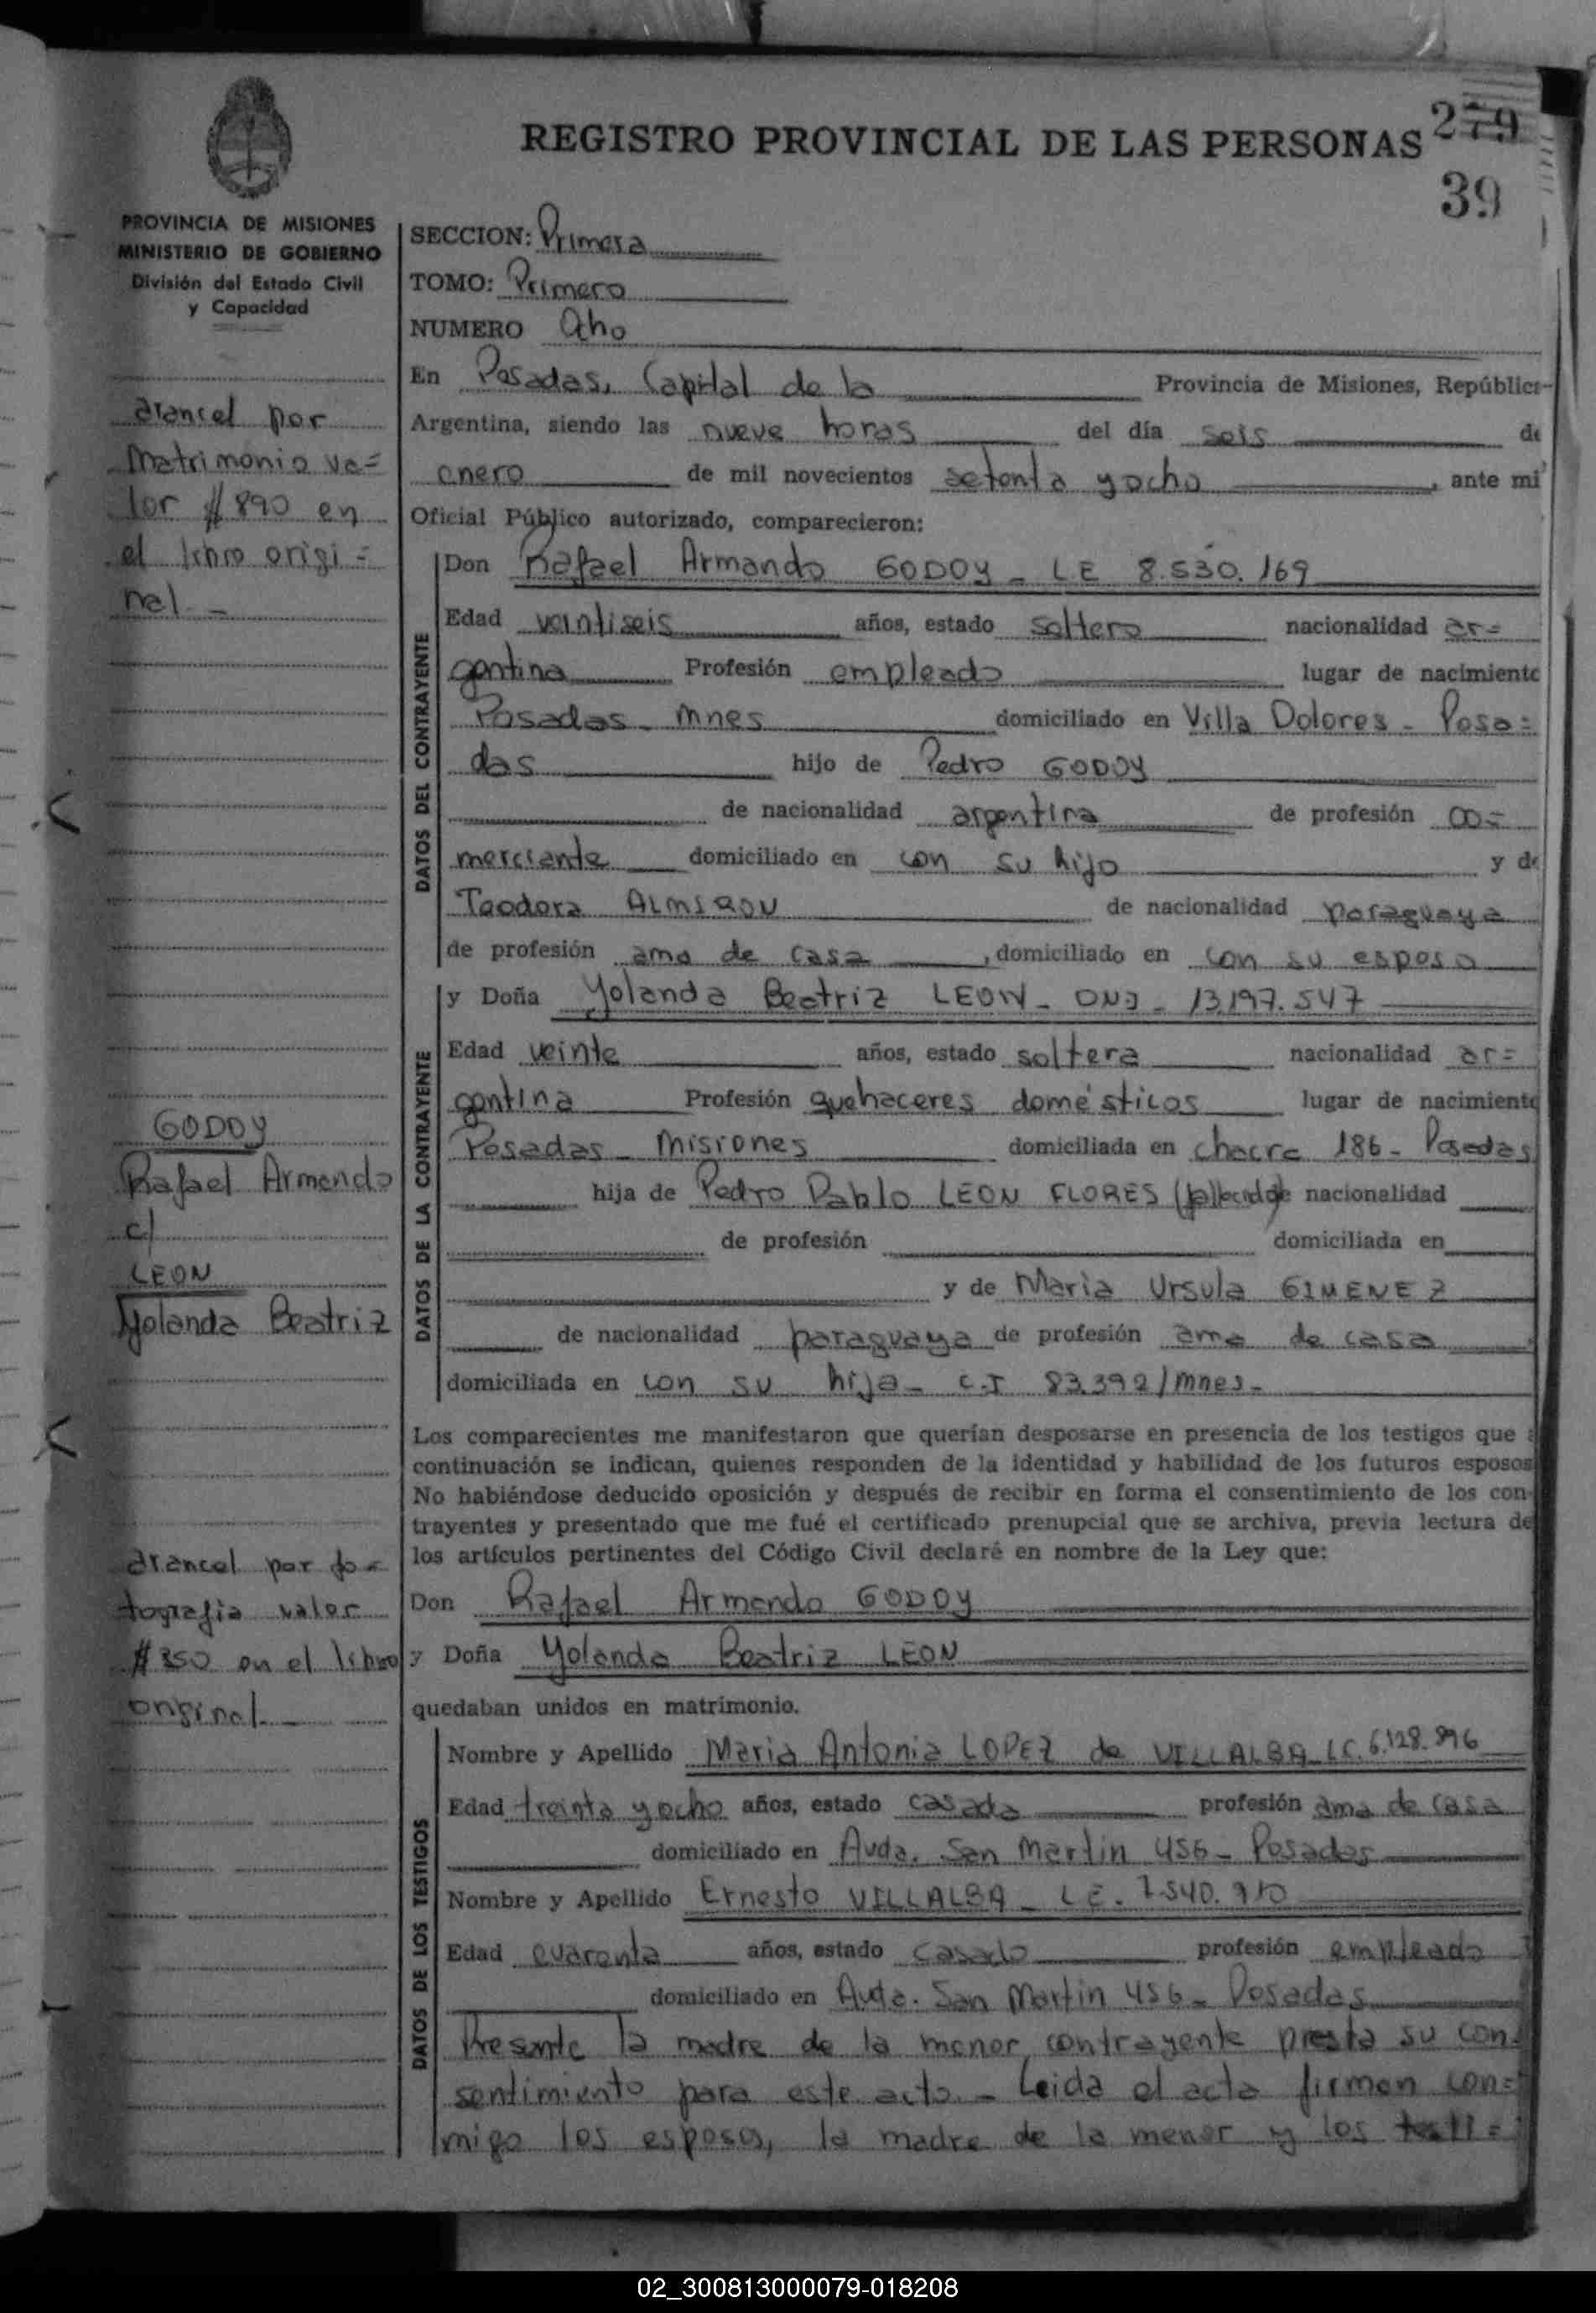 REGISTRO PROVINCIAL DE LAS PERSONAS
279
39
PROVINCIA DE MISIONES
MINISTERIO DE GOBIERNO
División del Estado Civil
y Capacidad
arancel por
Matrimonio va=
lor $890 en
el libro origi=
nal -
GODOY
Rafael Armando
c/
LEON
Yolanda Beatriz
arancel por fo=
tografia valor
$350 en el libro
original -
SECCION: Primera
TOMO: Primero
NUMERO Ocho
En Posadas, Capital de la Provincia de Misiones, Repúblic
Argentina, siendo las nueve horas del día seis de
enero de mil novecientos setenta y ocho, ante mi
Oficial Público autorizado, comparecieron:
DATOS DEL CONTRAYENTE
Don Rafael Armando GODOY - LE 8.530.169
Edad veintiseis años, estado soltero nacionalidad ar=
gentina Profesión empleado lugar de nacimiento
Posadas - Mnes domiciliado en Villa Dolores - Posa=
das hijo de Pedro GODOY
de nacionalidad argentina de profesión co=
merciante domiciliado en con su hijo y de
Teodora ALMIRON de nacionalidad paraguaya
de profesión ama de casa, domiciliado en con su esposo
DATOS DE LA CONTRAYENTE
y Doña Yolanda Beatriz LEON - DNI - 13.197.547
Edad veinte años, estado soltera nacionalidad ar=
gentina Profesión quehaceres domésticos lugar de nacimiento
Posadas - Misiones domiciliada en chacra 186 - Posadas
hija de Pedro Pablo LEON FLORES (fallecido) de nacionalidad
de profesión domiciliada en
y de Maria Ursula GIMENEZ
de nacionalidad paraguaya de profesión ama de casa
domiciliada en con su hija - C.I 83.392/Mnes -
Los comparecientes me manifestaron que querían desposarse en presencia de los testigos que a
continuación se indican, quienes responden de la identidad y habilidad de los futuros esposos
No habiéndose deducido oposición y después de recibir en forma el consentimiento de los con-
trayentes y presentado que me fué el certificado prenupcial que se archiva, previa lectura de
los artículos pertinentes del Código Civil declaré en nombre de la Ley que:
Don Rafael Armando GODOY
y Doña Yolanda Beatriz LEON
quedaban unidos en matrimonio.
DATOS DE LOS TESTIGOS
Nombre y Apellido Maria Antonia LOPEZ de VILLALBA LC. 6.128.896
Edad treinta y ocho años, estado casada profesión ama de casa
domiciliado en Avda. San Martin 456 - Posadas
Nombre y Apellido Ernesto VILLALBA - LE. 7.540.910
Edad cuarenta años, estado casado profesión empleado
domiciliado en Avda. San Martin 456 - Posadas
Presente la madre de la menor contrayente presta su con=
sentimiento para este acto - Leida el acta firman con=
migo los esposos, la madre de la menor y los testi=
02_300813000079-018208